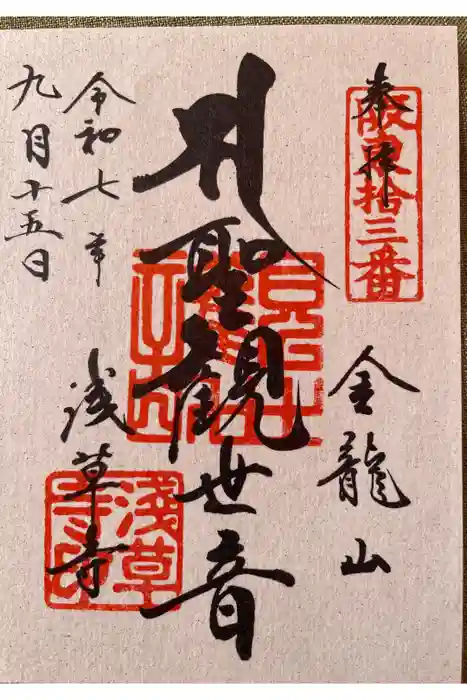 奉拝
阪東拾三番
金龍山
聖観世音
浅草寺
淺草寺印
令和七年
九月十五日